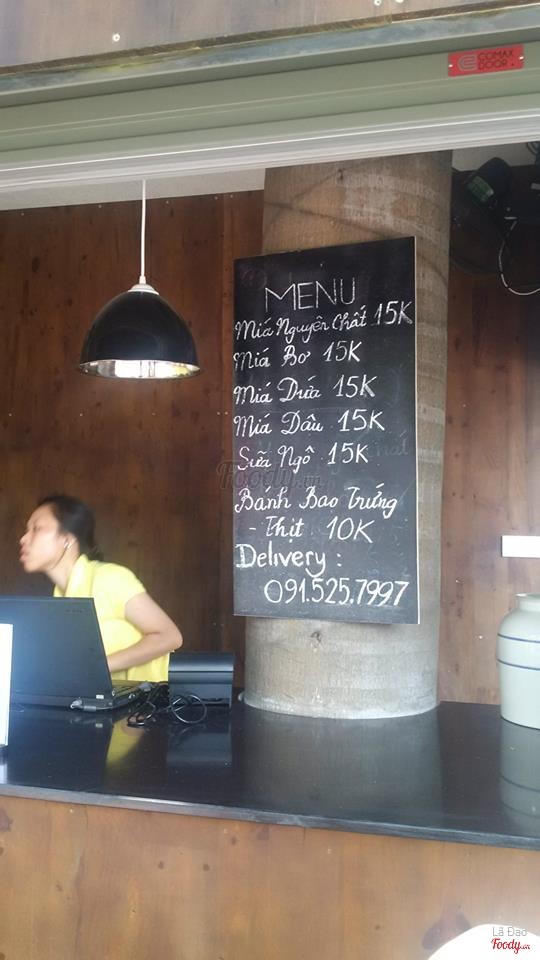 COMAX
DOOR
MENU
Miá Nguyên Chất 15K
Miá Bơ 15K
Miá Dứá 15K
Miá Dâu 15K
Sữa Ngô 15K
Bánh Bao Trứng
- Thịt 10K
Delivery :
091.525.7997
Foody.vn
Lã Đạo
Foody.vn